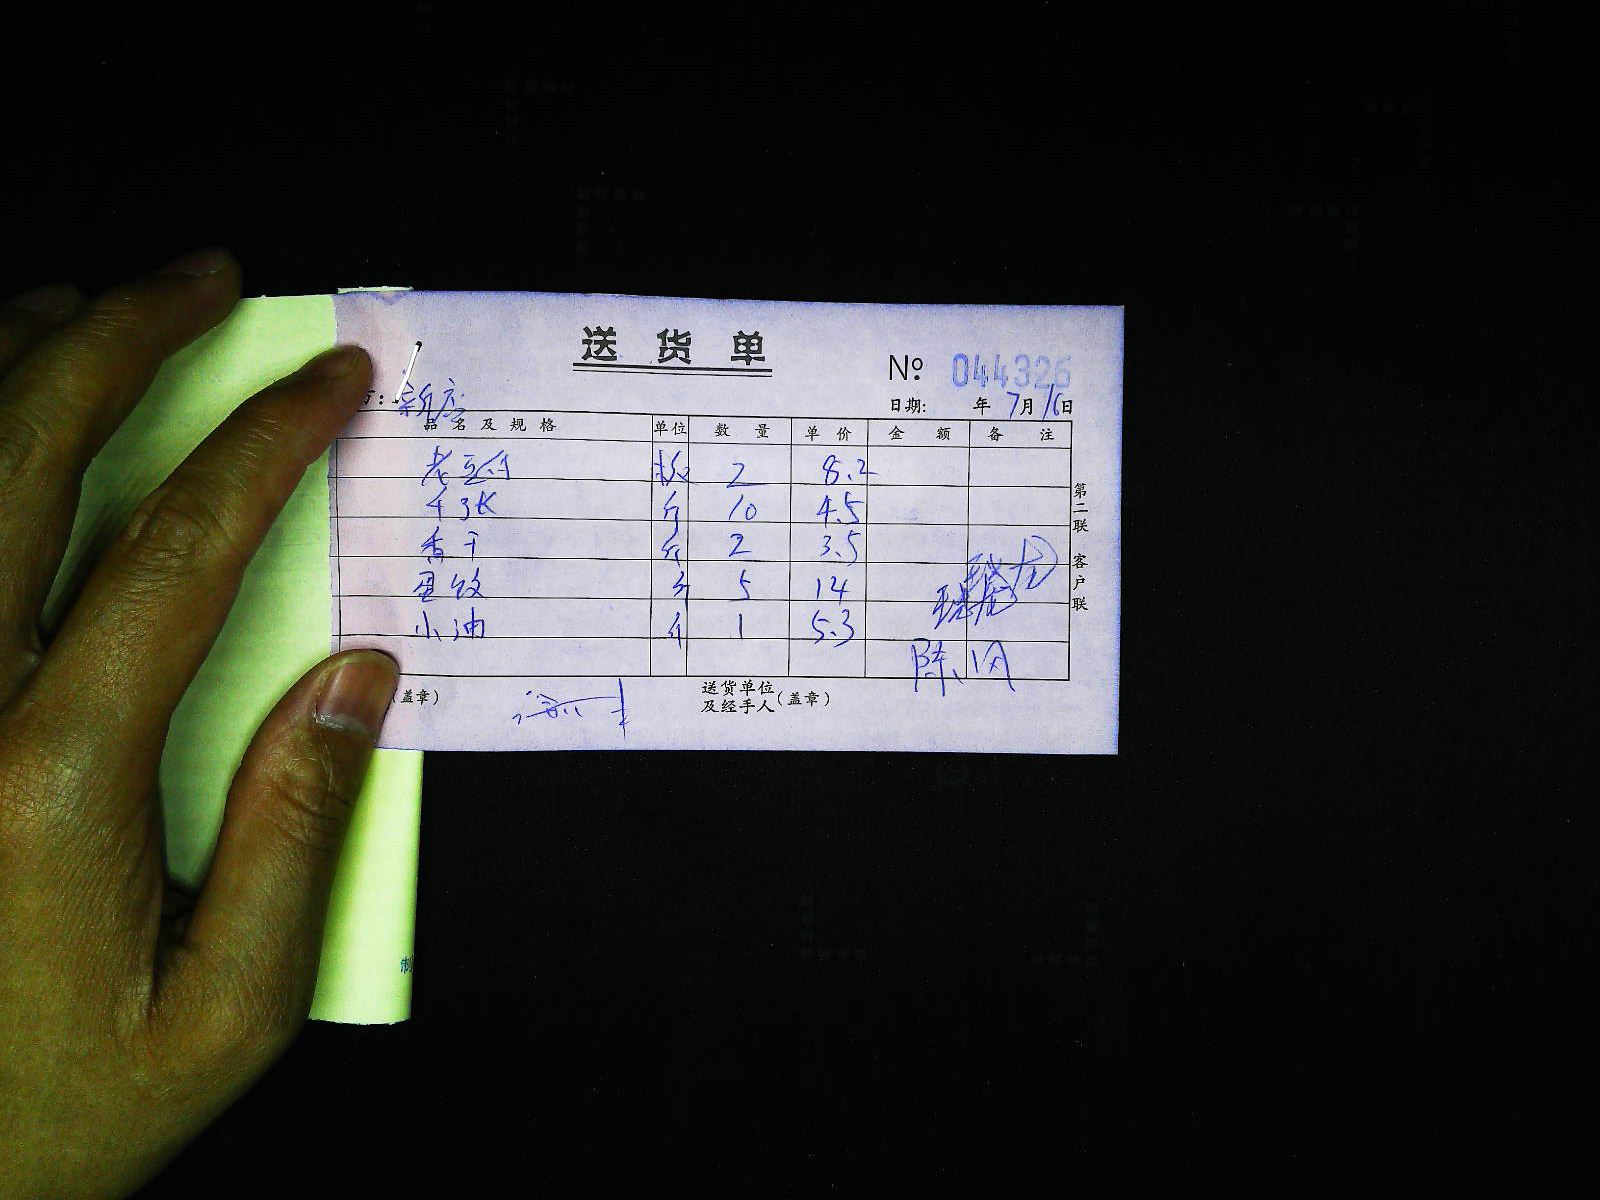 送货单
№ 044326
日期: 年 7月 16日
品名及规格 单位 数量 单价 金额 备注
老豆付 板 2 8.2
千张 斤 10 4.5
香干 斤 2 3.5
蛋饺 斤 5 14
小油 斤 1 5.3
第二联 客户联
(盖章)
送货单位
及经手人(盖章)